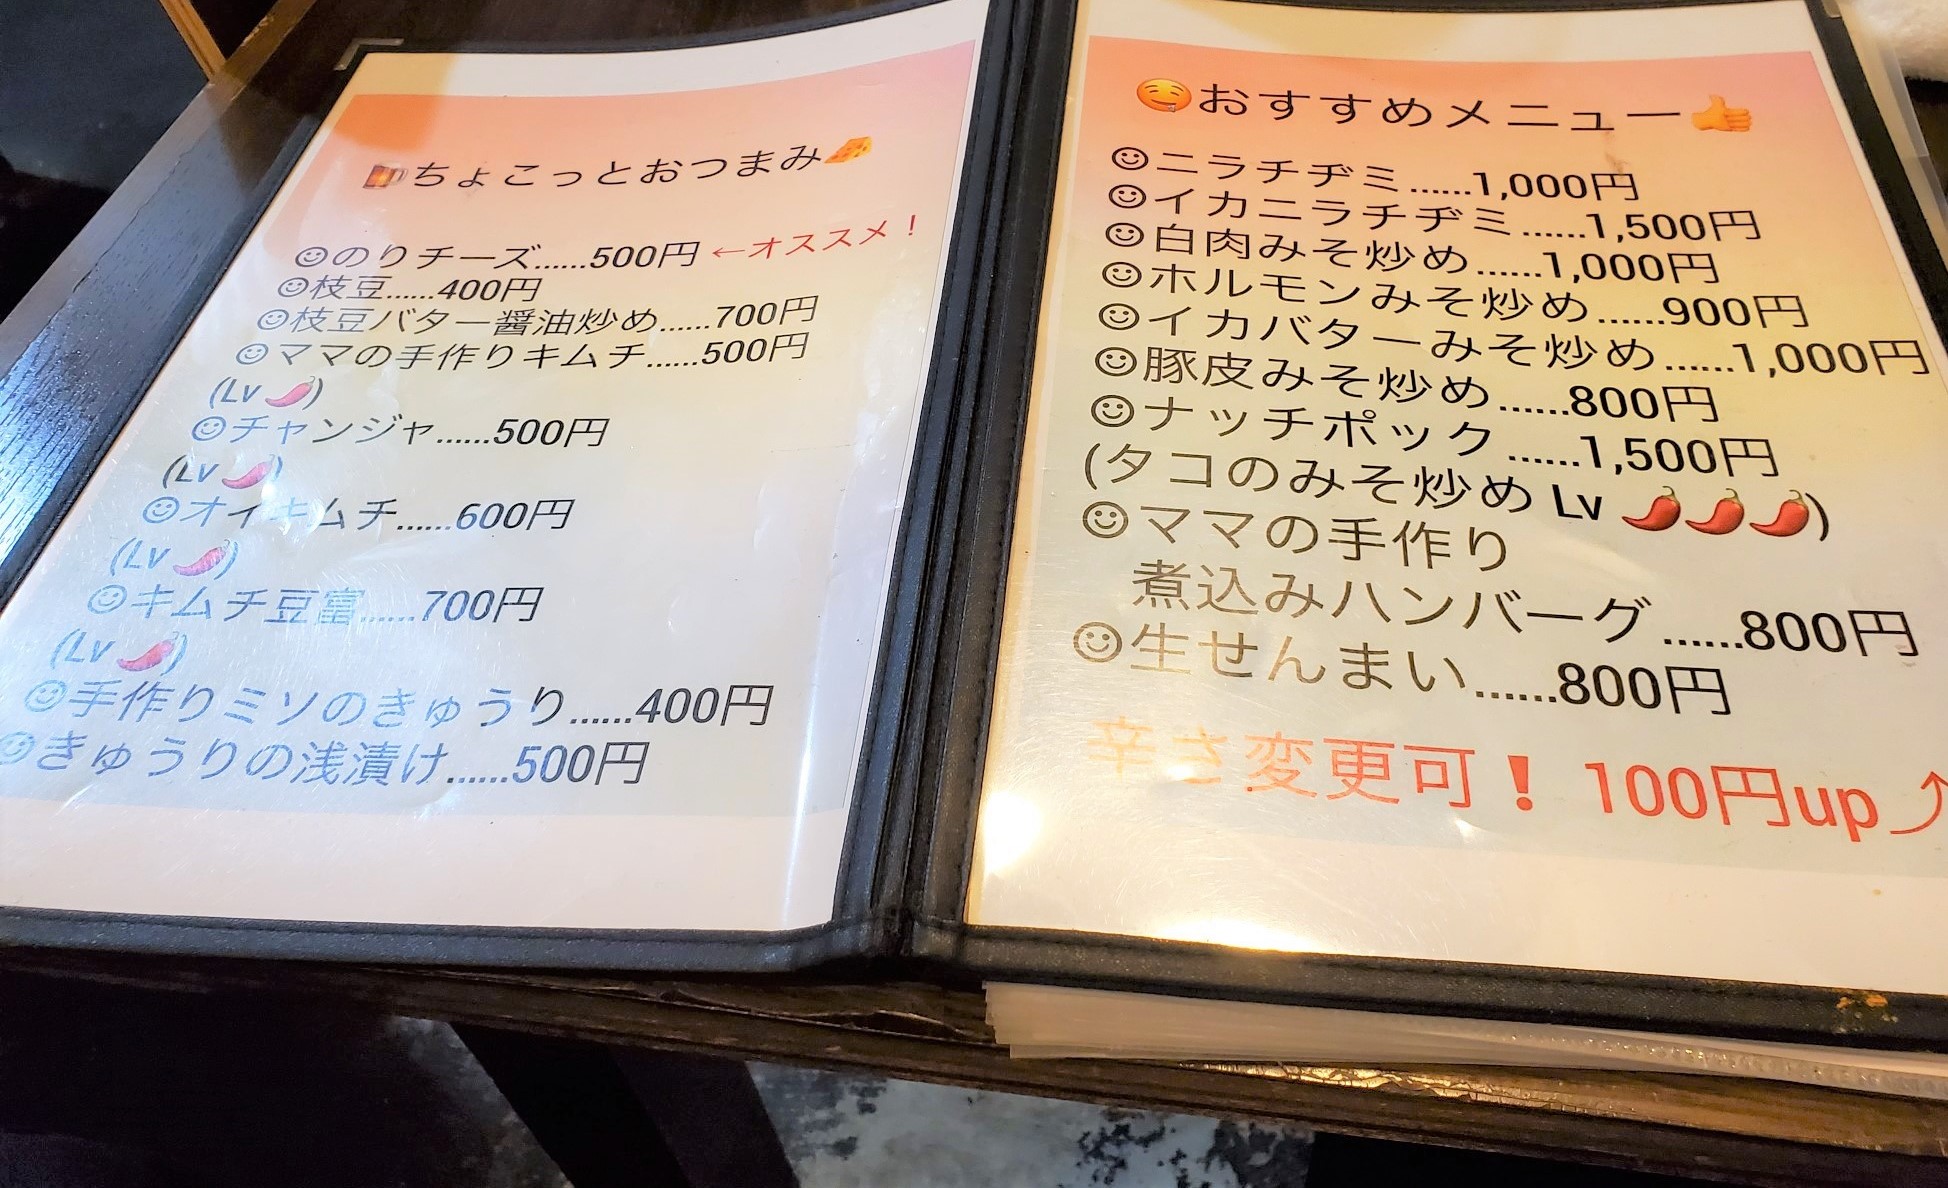 🍺ちょこっとおつまみ🧀
☺のりチーズ……500円 ←オススメ！
☺枝豆……400円
☺枝豆バター醤油炒め……700円
☺ママの手作りキムチ……500円
(Lv 🌶)
☺チャンジャ……500円
(Lv 🌶)
☺オイキムチ……600円
(Lv 🌶)
☺キムチ豆富……700円
(Lv 🌶)
☺手作りミソのきゅうり……400円
☺きゅうりの浅漬け……500円
🤤おすすめメニュー👍
☺ニラチヂミ……1,000円
☺イカニラチヂミ……1,500円
☺白肉みそ炒め……1,000円
☺ホルモンみそ炒め……900円
☺イカバターみそ炒め……1,000円
☺豚皮みそ炒め……800円
☺ナッチポック……1,500円
(タコのみそ炒め Lv 🌶🌶🌶)
☺ママの手作り
煮込みハンバーグ……800円
☺生せんまい……800円
辛さ変更可❗ 100円up⤴